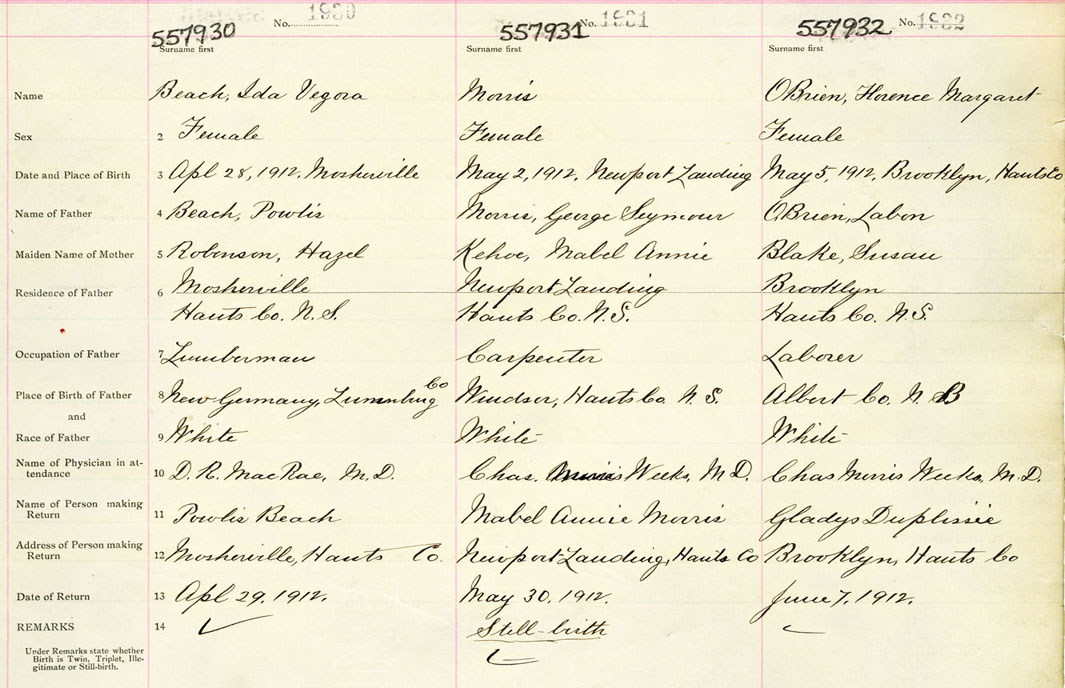 557930 No. 1930 557931 No. 1931 557932 No. 1932
Surname first Surname first Surname first
Name Beach, Ida Vegora Morris OBrien, Florence Margaret
Sex 2 Female Female Female
Date and Place of Birth 3 Apl 28, 1912. Mosherville May 2, 1912. Newport Landing May 5, 1912, Brooklyn, Hants Co
Name of Father 4 Beach, Powlis Morris, George Seymour O'Brien, Labon
Maiden Name of Mother 5 Robinson, Hazel Kehoe, Mabel Annie Blake, Susan
Residence of Father 6 Mosherville Newport Landing Brooklyn
Hants Co. N.S. Hants Co. N.S. Hants Co. N.S.
Occupation of Father 7 Lumberman Carpenter Laborer
Place of Birth of Father 8 New Germany, Lunenburg Co Windsor, Hants Co. N.S. Albert Co. N.B
and
Race of Father 9 White White White
Name of Physician in at-
tendance 10 D. R. MacRae, M.D. Chas. Morris Weeks, M.D. Chas Morris Weeks, M.D.
Name of Person making
Return 11 Powlis Beach Mabel Annie Morris Gladys Duplissie
Address of Person making
Return 12 Mosherville, Hants Co. Newport Landing, Hants Co Brooklyn, Hants Co
Date of Return 13 Apl 29, 1912. May 30, 1912. June 7, 1912.
REMARKS 14 Still-birth
Under Remarks state whether
Birth is Twin, Triplet, Ille-
gitimate or Still-birth.